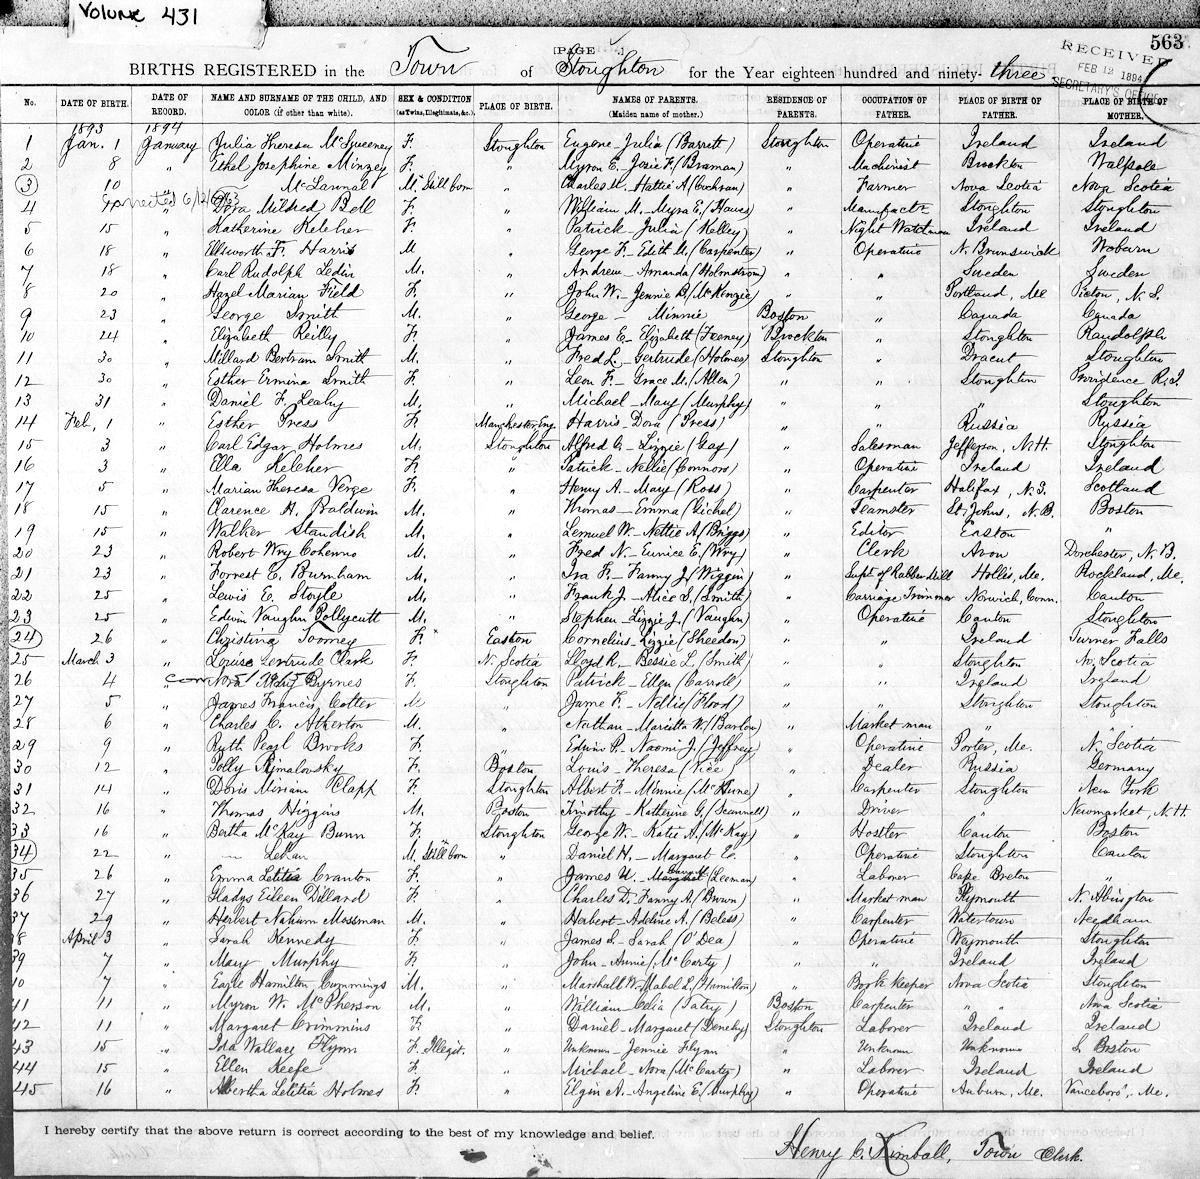 VOLUME 431
[PAGE .]
563
RECEIVED
FEB 12 1894
SECRETARY'S OFFICE
BIRTHS REGISTERED in the Town of Stoughton for the Year eighteen hundred and ninety-three
No. DATE OF BIRTH. DATE OF RECORD. NAME AND SURNAME OF THE CHILD, AND COLOR (if other than white). SEX & CONDITION (as Twins, Illegitimate, &c.). PLACE OF BIRTH. NAMES OF PARENTS. (Maiden name of mother.) RESIDENCE OF PARENTS. OCCUPATION OF FATHER. PLACE OF BIRTH OF FATHER. PLACE OF BIRTH OF MOTHER.
1893 1894
1 Jan. 1 January Julia Theresa McSweeney F. Stoughton Eugene Julia (Barrett) Stoughton Operative Ireland Ireland
2 8 " Ethel Josephine Minzey F. " Myron E. Josie F. (Braman) " Machinist Brockton Walpole
3 10 McLannal M. Still born " Charles W. Hattie A (Cochran) " Farmer Nova Scotia Nova Scotia
corrected 6/12/63
4 " Dora Mildred Bell F. " William M. - Myra E. (Hawes) " Manufactr Stoughton Stoughton
5 15 " Katherine Keleher F. " Patrick - Julia (Kelley) " Night Watchman Ireland Ireland
6 18 " Ellsworth F. Harris M " George F. - Edith M. (Carpenter) " Operative N. Brunswick Woburn
7 18 " Carl Rudolph Ledin M. " Andrew - Amanda (Holmstrom) " " Sweden Sweden
8 20 " Hazel Marian Field F. " John W. - Jennie B. (McKenzie) " " Portland, Me Picton, N.S.
9 23 " George Smith M. " George - Minnie Boston " Canada Canada
10 24 " Elizabeth Reilly F. " James E. - Elizabeth (Feeney) Brockton " Stoughton Randolph
11 30 " Millard Bertram Smith M. " Fred L. - Gertrude (Holmes) Stoughton " Dracut Stoughton
12 30 " Esther Ermina Smith F. " Leon F. - Grace M. (Allen) " " Stoughton Providence R.I.
13 31 " Daniel F. Leahy M. " Michael - Mary (Murphy) " " " Stoughton
14 Feb. 1 " Esther Press F. Manchester, Eng. Harris - Dora (Press) " " Russia Russia
15 3 " Carl Edgar Holmes M. Stoughton Alfred C. - Lizzie (Gay) " Salesman Jefferson, N.H. Stoughton
16 3 " Ella Keleher F. " Patrick - Nellie (Connors) " Operative Ireland Ireland
17 5 " Marian Theresa Verge F. " Henry A. - Mary (Ross) " Carpenter Halifax, N.S. Scotland
18 15 " Clarence H. Baldwin M. " Thomas - Emma (Eichel) " Teamster St. Johns, N.B. Boston
19 15 " Walker Standish M. " Lemuel W. - Nettie A (Briggs) " Editor Easton "
20 23 " Robert Wry Coheno M. " Fred N. - Eunice E. (Wry) " Clerk Avon Dorchester, N.B.
21 23 " Forrest C. Burnham M. " Ira F. - Fanny J. (Wiggin) " Supt of Rubber Mill Hollis, Me. Rockland, Me.
22 25 " Lewis E. Stoyle M. " Frank J. - Alice S. (Smith) " Carriage Trimmer Norwich, Conn. Canton
23 25 " Edwin Vaughn Pollycutt M. " Stephen - Lizzie J. (Vaughn) " Operative Canton Stoughton
24 26 " Christina Toomey F. Easton Cornelius - Lizzie (Sheedon) " " Ireland Turner Falls
25 March 3 " Louise Gertrude Clark F. N. Scotia Lloyd R. - Bessie L. (Smith) " " Stoughton No. Scotia
26 4 " Mary Byrnes F. Stoughton Patrick - Ellen (Carroll) " " Ireland Ireland
27 5 " James Francis Cotter M " Jame F. - Nellie (Flood) " " Stoughton Stoughton
28 6 " Charles C. Atherton M. " Nathan - Marietta W. (Barlow) " Market man " "
29 9 " Ruth Pearl Brooks F. " Edwin P. - Naomi J. (Jeffrey) " Operative Porter, Me. N. Scotia
30 12 " Polly Rimalovsky F. Boston Louis - Theresa (Rice " Dealer Russia Germany
31 14 " Doris Miriam Clapp F. Stoughton Albert F. - Minnie (McHune) " Carpenter Stoughton New York
32 16 " Thomas Higgins M. Boston Timothy - Katherine G. (Scannell) " Driver " Newmarket, N.H.
33 16 " Bertha McKay Bunn F. Stoughton George W. - Katie A. (McKay) " Hostler Canton Boston
34 22 " — Lehan M. Still born " Daniel H. - Margaret E. " Operative Stoughton Canton
35 26 " Emma Letitia Cranton F. " James H. - (Leeman) " Laborer Cape Breton "
36 27 " Gladys Eileen Dillard F. " Charles D. Fanny A. (Brown) " Market man Plymouth N. Abington
37 29 " Herbert Nahum Mossman M. " Herbert - Adeline A. (Beless) " Carpenter Watertown Needham
38 April 3 " Sarah Kennedy F. " James S. - Sarah (O'Dea) " Operative Weymouth Stoughton
39 7 " Mary Murphy F. " John - Annie (McCarty) " " Ireland Ireland
40 7 " Earle Hamilton Cummings M. " Marshall W. Mabel L. (Hamilton) " Book keeper Nova Scotia Stoughton
41 11 " Myron W. McPherson M. " William - Celia (Patry) Boston Carpenter " " Nova Scotia
42 11 " Margaret Crimmins F. " Daniel - Margaret (Denehy) Stoughton Laborer Ireland Ireland
43 15 " Ida Wallace Flynn F. Illegit. " Unknown - Jennie Flynn " Unknown Unknown S. Boston
44 15 " Ellen Keefe F. " Michael - Nora (McCarty) " Laborer Ireland Ireland
45 16 " Bertha Letitia Holmes F. " Elgin A. - Angeline E. (Murphy) " Operative Auburn, Me. Vanceboro', Me.
I hereby certify that the above return is correct according to the best of my knowledge and belief.
Henry C. Kimball, Town Clerk.